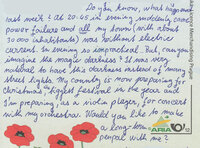 Do you know, what happen
last week? at 20:05 in evening suddenly came
power failure and all my town (with about
30 000 inhabitants) was without electric
current. In evening so impractical. But, can you
imagine the magic darkness? It was very
unusual to have this darkness instead of many
street lights. My country is now preparing for
Christmas - biggest festival in the year and
I'm preparing, as a violin player, for concert
with my orchestra. Would you like to make
a long-term
penpal with me?
ARIA